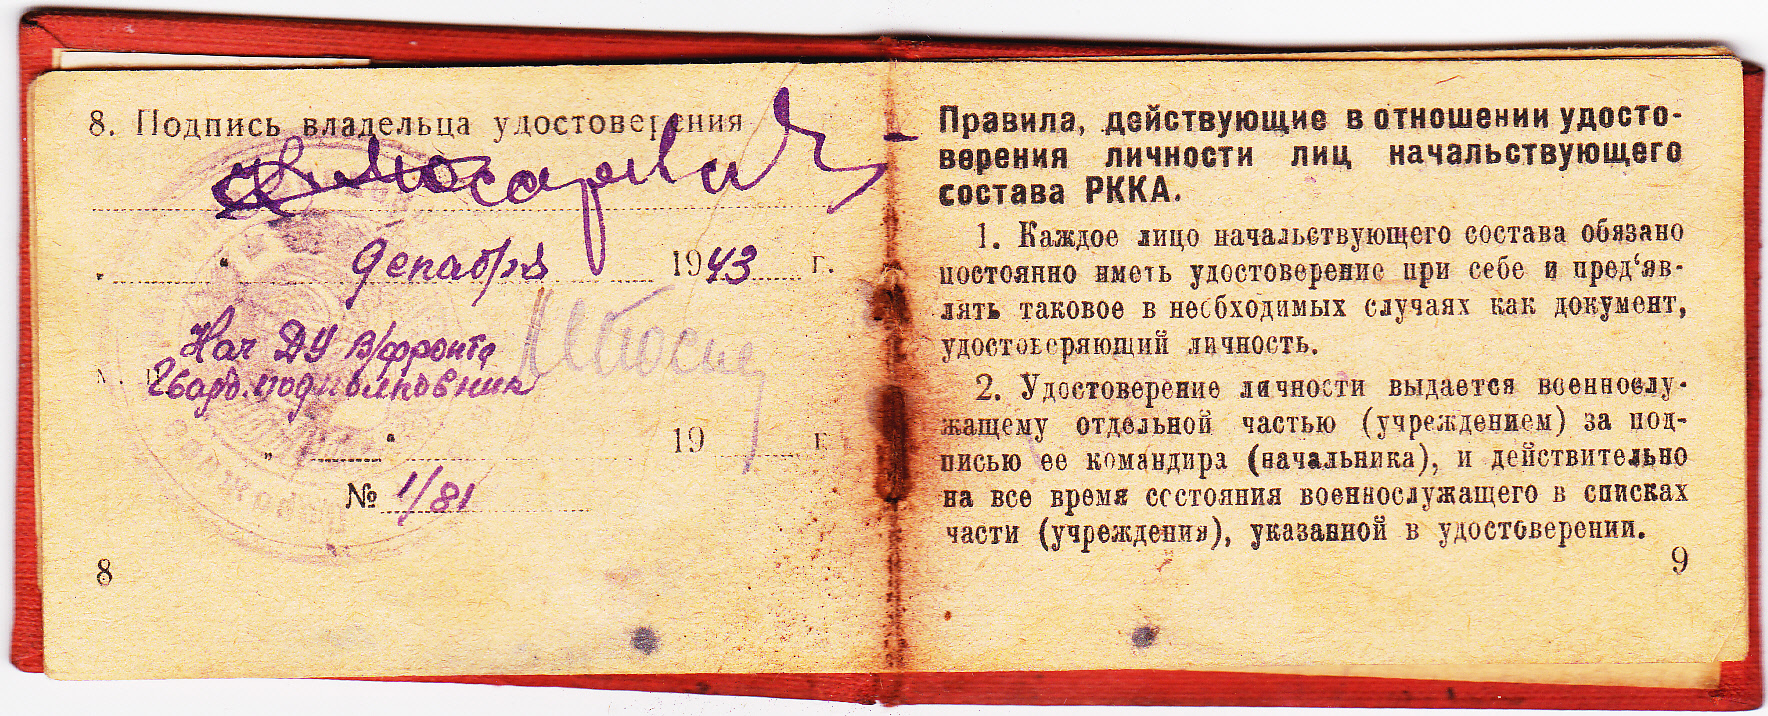 8. Подпись владельца удостоверения
декабря 1943 г.
Нач ДУ В/фронта
Гвард. подполковник
19 г.
№ 1/81
8
Правила, действующие в отношении удосто-
верения личности лиц начальствующего
состава РККА.
1. Каждое лицо начальствующего состава обязано
постоянно иметь удостоверение при себе и пред‘яв-
лять таковое в необходимых случаях как документ,
удостоверяющий личность.
2. Удостоверение личности выдается военнослу-
жащему отдельной частью (учреждением) за под-
писью ее командира (начальника), и действительно
на все время состояния военнослужащего в списках
части (учреждения), указанной в удостоверении.
9